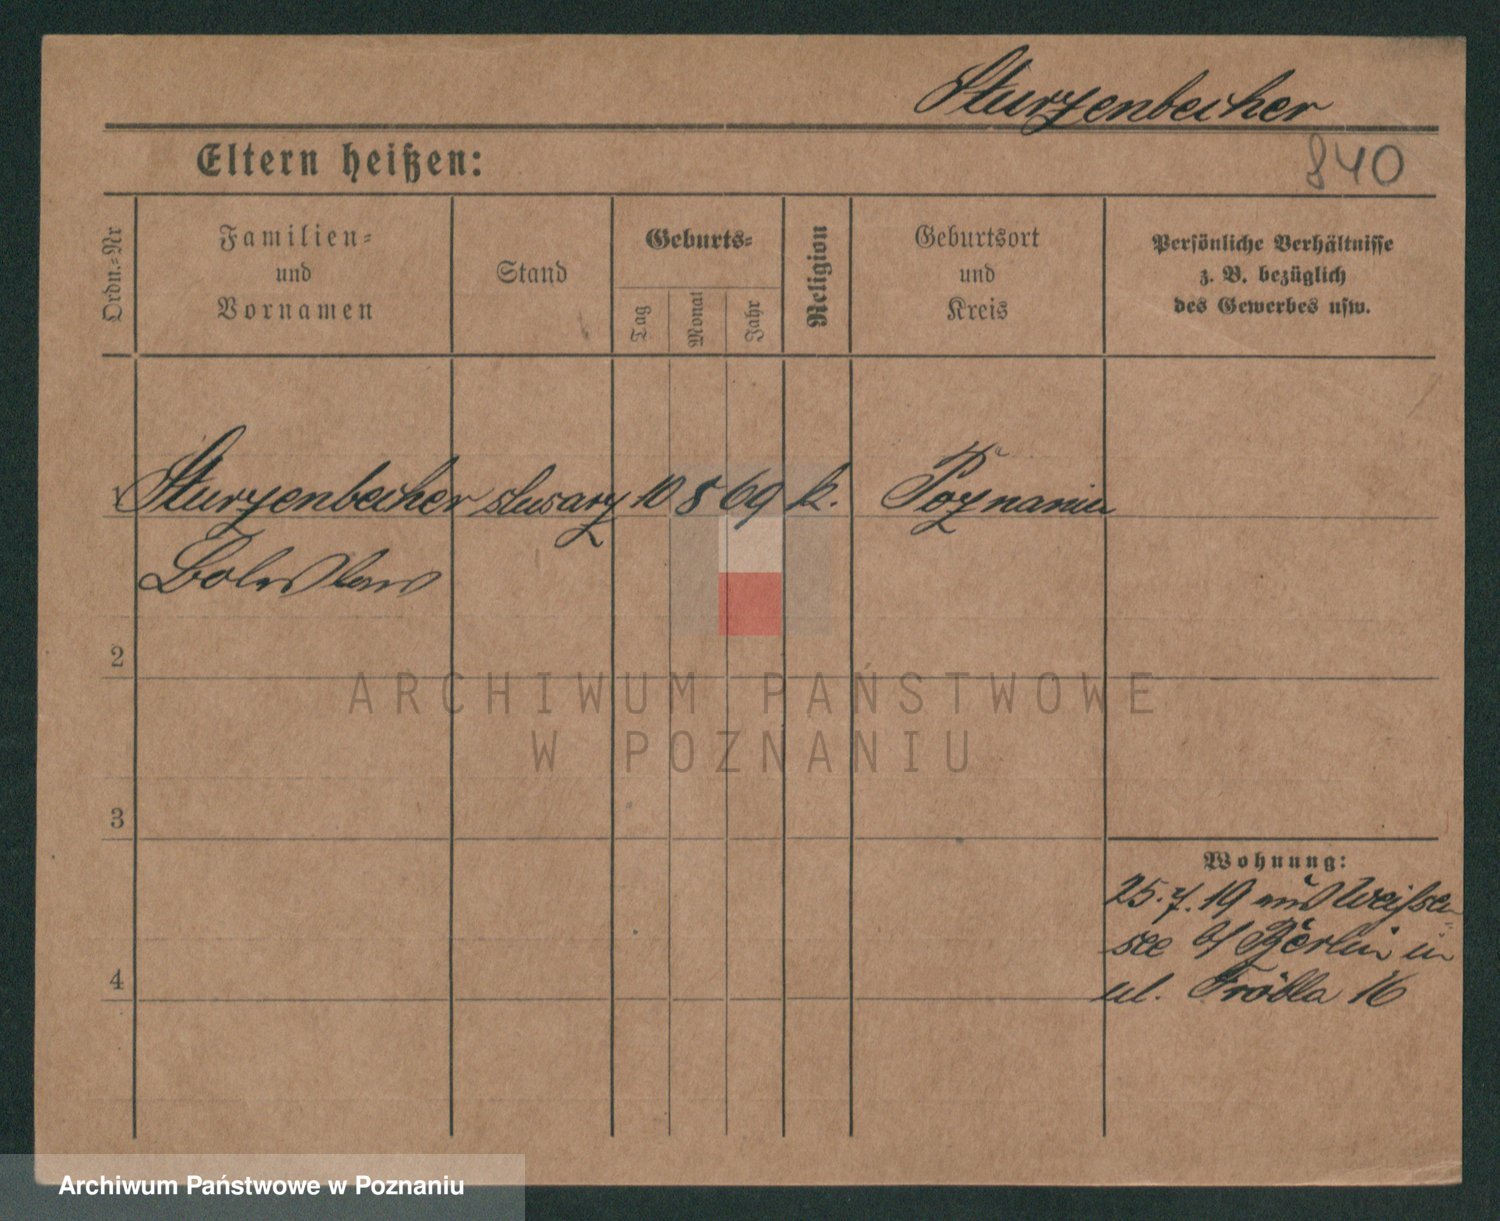 Sturzenbecher
Eltern heißen:
840
Ordn.=Nr
Familien=
und
Vornamen
Stand
Geburts=
Tag
Monat
Jahr
Religion
Geburtsort
und
Kreis
Persönliche Verhältnisse
z. B. bezüglich
des Gewerbes usw.
1 Sturzenbecher slusarz 10 8 69 k. Poznaniu
Bolesław
2
ARCHIWUM PAŃSTWOWE
W POZNANIU
3
Wohnung:
25.7.19 aus Weißen=
see b/ Berlin in
4
ul. Fröbla 16
Archiwum Państwowe w Poznaniu